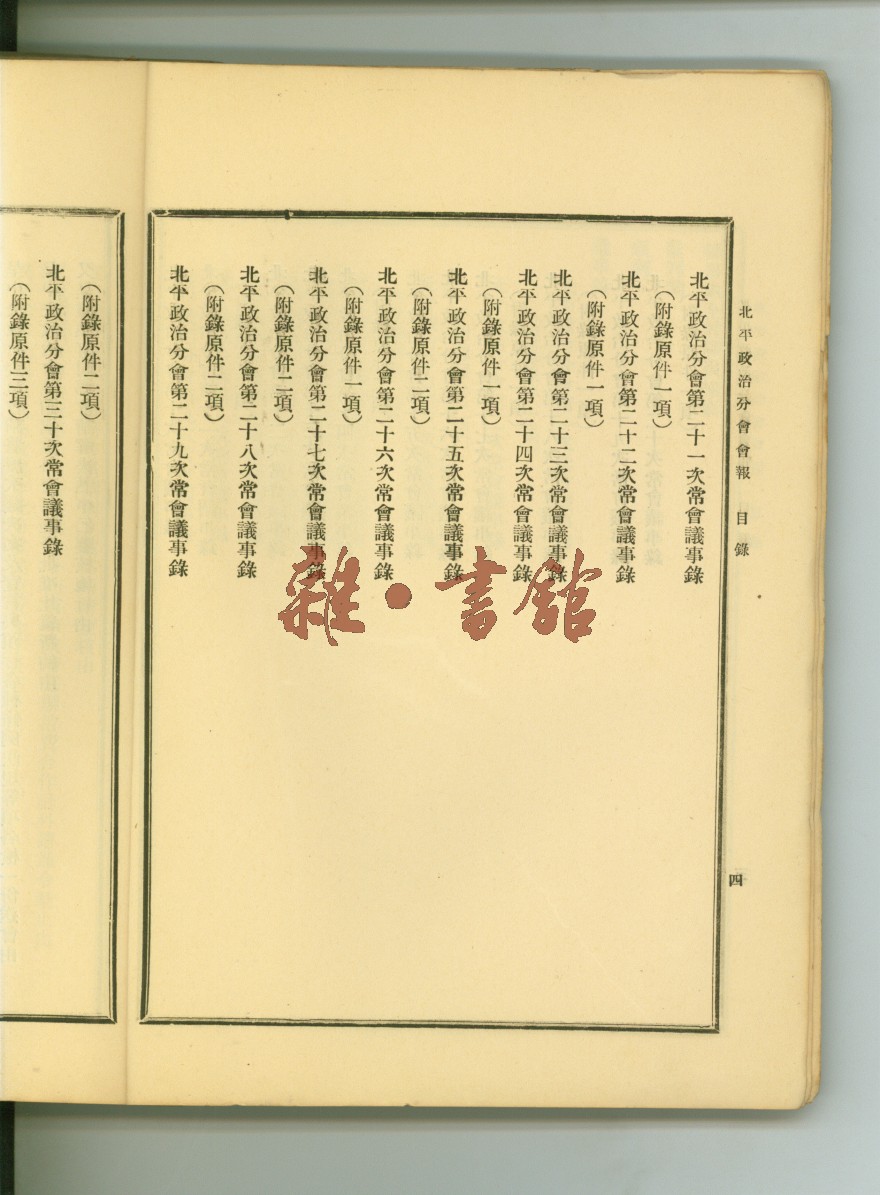 北平政治分會會報　目錄
四
北平政治分會第二十一次常會議事錄
（附錄原件一項）
北平政治分會第二十二次常會議事錄
（附錄原件一項）
北平政治分會第二十三次常會議事錄
北平政治分會第二十四次常會議事錄
（附錄原件一項）
北平政治分會第二十五次常會議事錄
（附錄原件二項）
北平政治分會第二十六次常會議事錄
（附錄原件一項）
北平政治分會第二十七次常會議事錄
（附錄原件二項）
北平政治分會第二十八次常會議事錄
（附錄原件二項）
北平政治分會第二十九次常會議事錄
（附錄原件二項）
北平政治分會第三十次常會議事錄
（附錄原件三項）
雜·書館